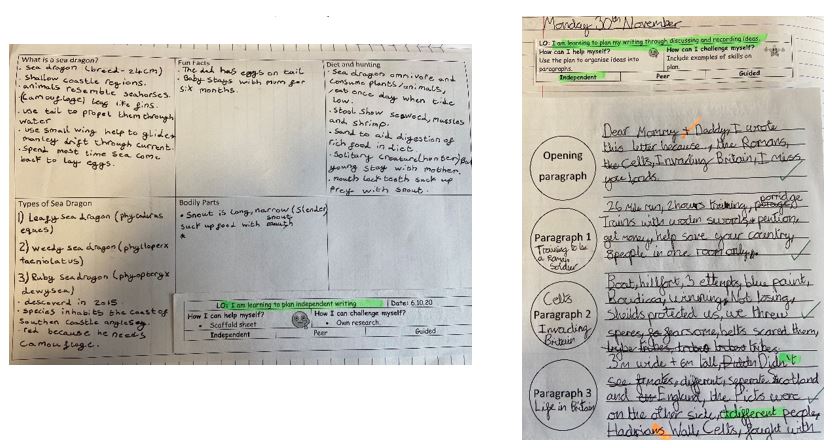 What is a sea dragon?
• Sea dragon (breed - 24cm)
• Shallow coastle regions.
• animals resemble seahorses.
(camouflage) long like fins.
• use tail to propel them through
water
• use small wing help to glide
manley drift through current.
• spend most time sea come
back to lay eggs.
Fun Facts
• The dad has eggs on tail
• Baby stays with mum for
six months.
Diet and hunting
• Sea dragons omnivore and
consume plants/animals,
eat once day when tide
low.
• Stool show seaweed, mussles
and shrimp.
• Sand to aid digestion of
rich food in diet.
• Solitary creature (hunter) But
young stay with mother.
• mouth lack tooth suck up
Prey with snout.
Types of Sea Dragon
1) Leafy Sea dragon (phycodurus
eques)
2) Weedy sea dragon (phyllopterx
taeniolatus)
3) Ruby Seadragon (phyopteryx
dewysea)
• descovered in 2015.
• species inhabits the coast of
Southen coastle
• red because he needs
camouflage.
Bodily Parts
• Snout is long, narrow (slender)
snout
suck up food with mouth
LO: I am learning to plan independent writing
Date: 6.10.20
How can I help myself?
• Scaffold sheet
How can I challenge myself?
• Own research.
Independent Peer Guided
Monday 30th November
LO: I am learning to plan my writing through discussing and recording ideas.
How can I help myself?
Use the plan to organise ideas into
paragraphs.
How can I challenge myself?
Include examples of skills on
plan.
Independent Peer Guided
Opening
paragraph
Dear Mommy + Daddy, I wrote
this letter because, the Romans,
the Celts, Invading Britain, I miss
you loads.
Paragraph 1
Training to be
a Roman
Soldier
26 Mile run, 2 hours training, porridge
Trains with wooden swords,
get money, help save your country,
8 people in one room only,
Paragraph 2
Celts
Invading
Britain
Boat, hillfort, 3 attempts, blue paint,
Boudicca, winnning, Not losing,
Sheilds protected us, we threw
speres, fearsome, belts scared them,
Paragraph 3
Life in Britain
3m wide + 6m tall, Didn't
see, different, seperate Scotland
and England, the Picts were
on the other side, different people,
Hadrians Wall, Celts, fought with